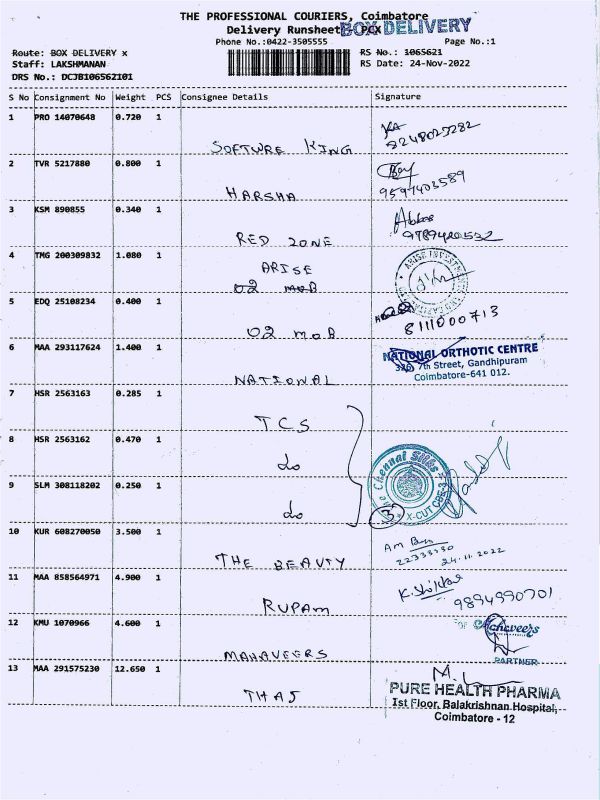 THE PROFESSIONAL COURIERS, Coimbatore
Delivery Runsheet PCX
BOX DELIVERY
Phone No.:0422-3505555 Page No.:1
Route: BOX DELIVERY x RS No.: 1065621
Staff: LAKSHMANAN RS Date: 24-Nov-2022
DRS No.: DCJB106562101
S No Consignment No Weight PCS Consignee Details Signature
1 PRO 14070648 0.720 1
SOFTWRE KING
2 TVR 5217880 0.800 1
HARSHA 9597403589
3 KSM 890855 0.340 1
RED ZONE
4 TMG 200309832 1.080 1
ARISE
02 MOB
5 EDQ 25108234 0.400 1
02 MOB 8111000713
6 MAA 293117624 1.400 1
NATIONAL
NATIONAL ORTHOTIC CENTRE
326, 7th Street, Gandhipuram
Coimbatore-641 012.
7 HSR 2563163 0.285 1
TCS
8 HSR 2563162 0.470 1
do
9 SLM 308118202 0.250 1
do
The Chennai Silks
X-CUT CBE-3
3
10 KUR 608270050 3.500 1
THE BEAUTY
24.11.2022
11 MAA 858564971 4.900 1
RUPAM 9894990701
12 KMU 1070966 4.600 1
MAHAVEERS
PARTNER
13 MAA 291575230 12.650 1
THAJ
PURE HEALTH PHARMA
Ist Floor, Balakrishnan Hospital,
Coimbatore - 12